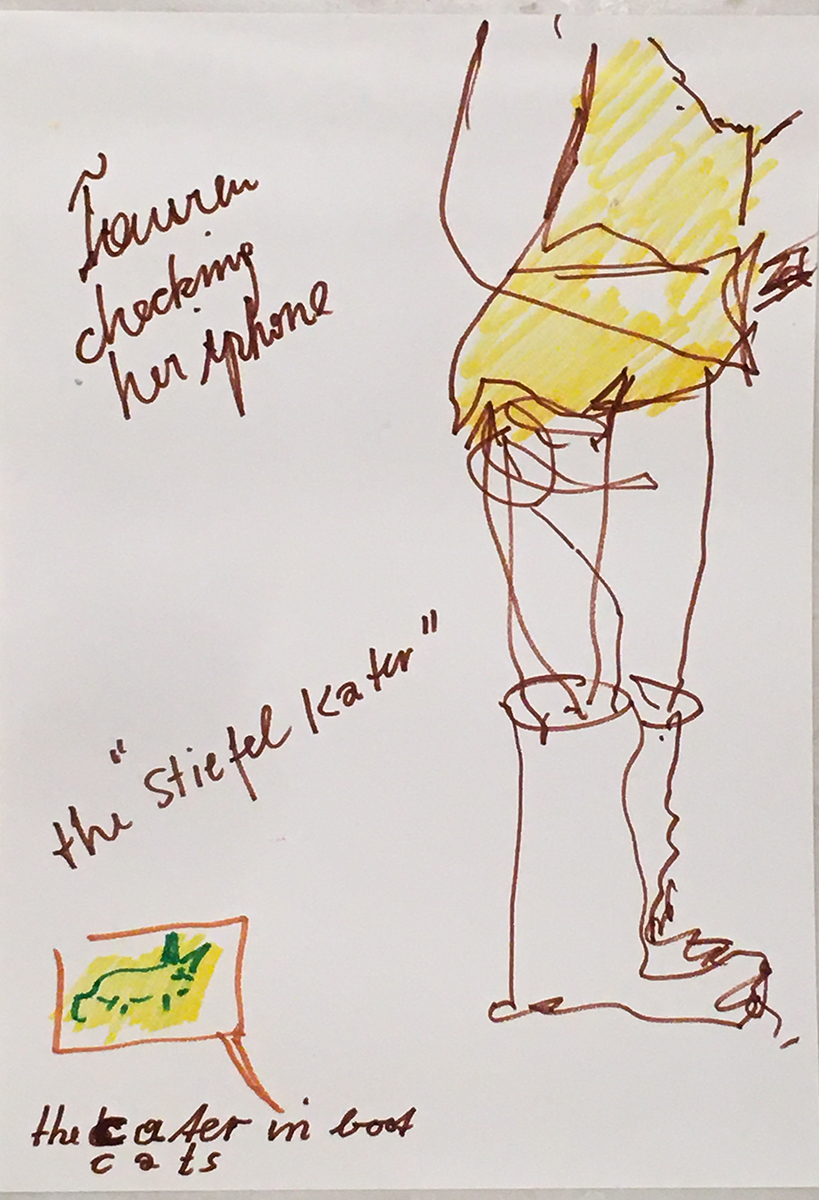 Lauren
checking
her iphone
the "Stiefel Kater"
the Cater in boot
cats